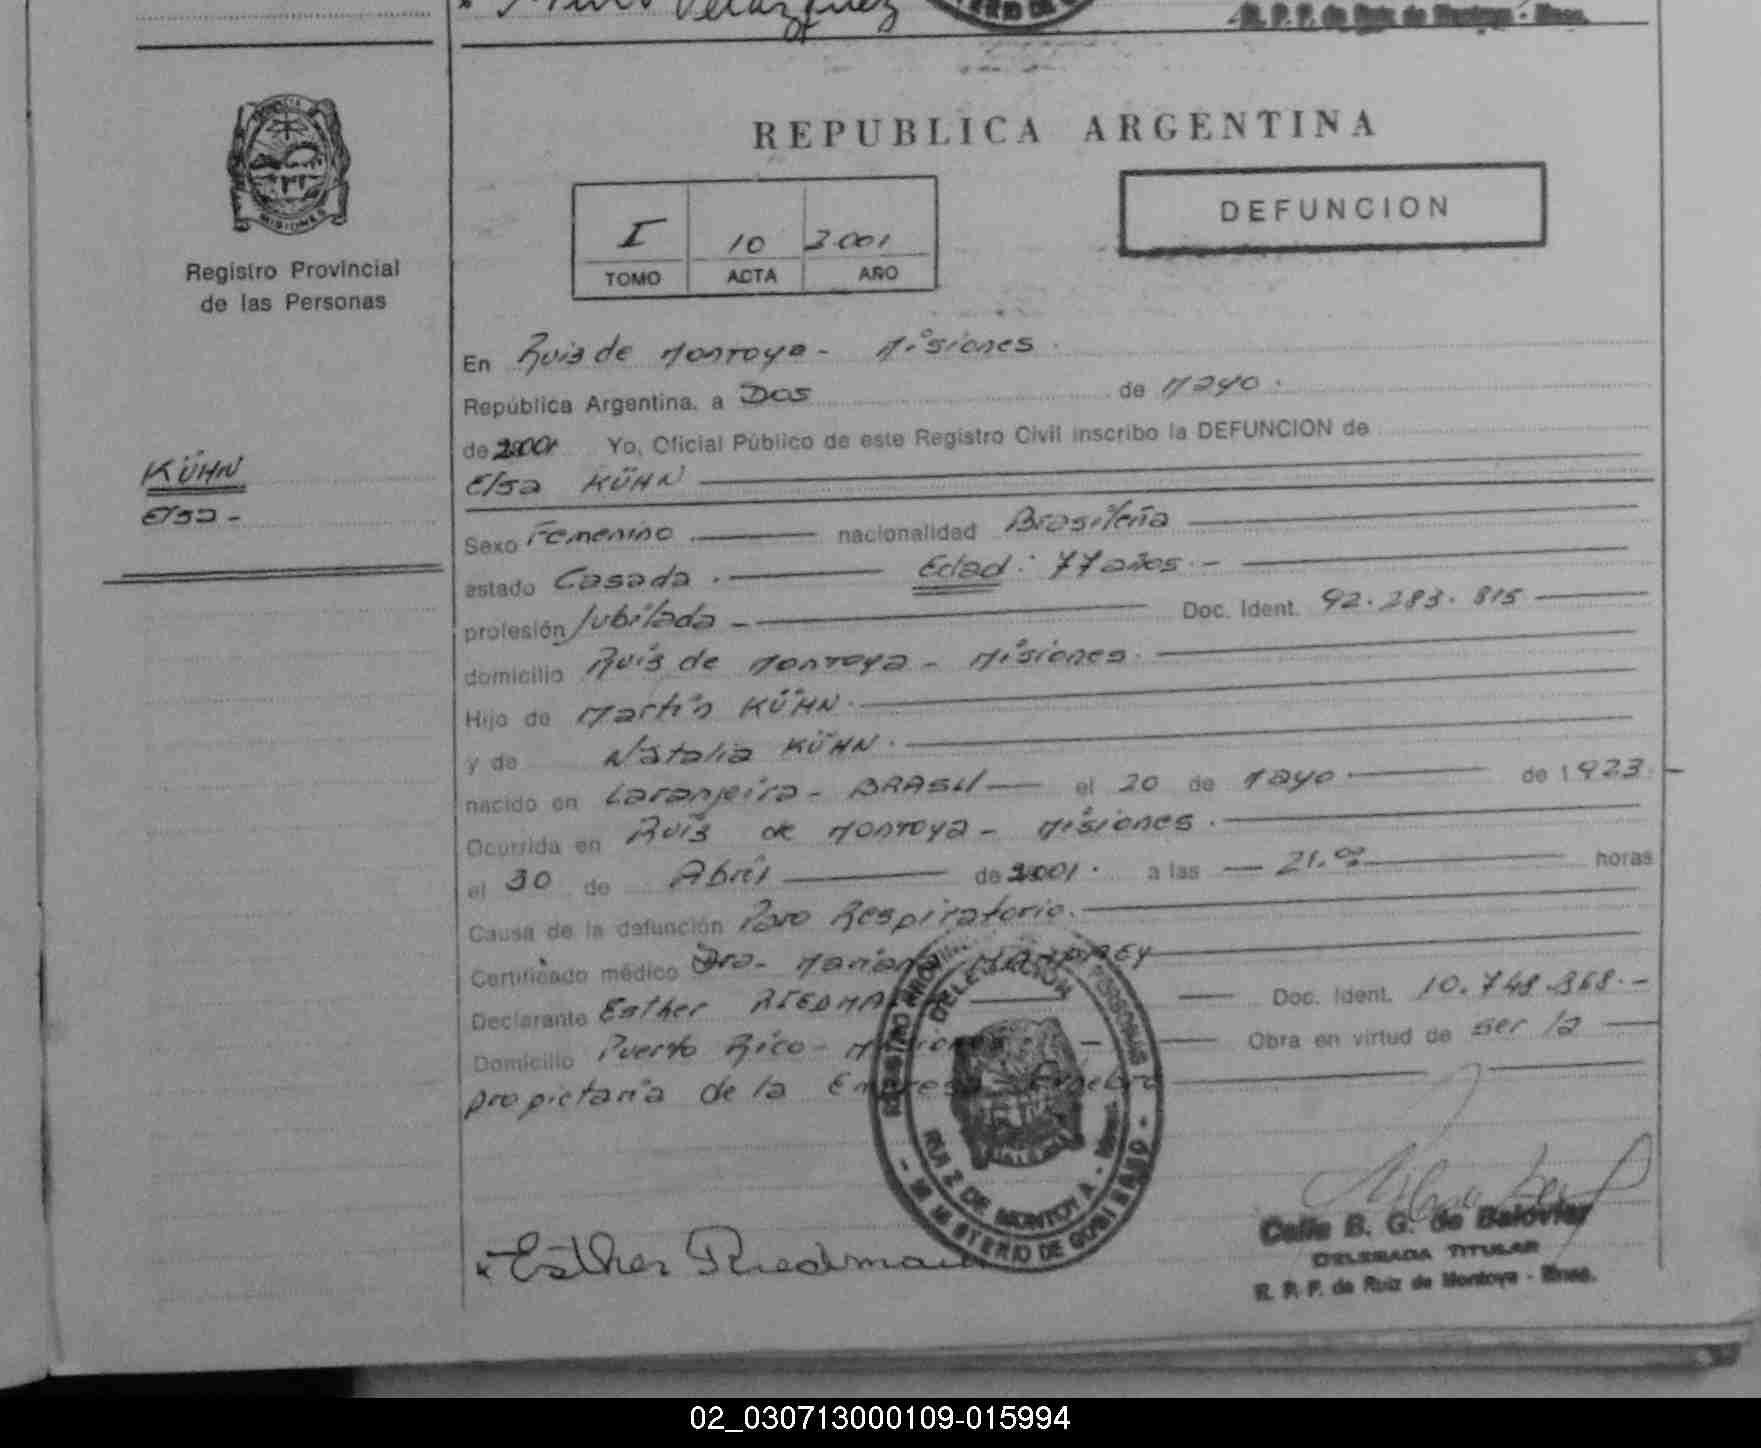 Velázquez
R. P. P. de Ruiz de Montoya - Mnes.
REPUBLICA ARGENTINA
DEFUNCION
I 10 2.001
TOMO ACTA AÑO
MISIONES
Registro Provincial
de las Personas
En Ruiz de Montoya - Misiones.
República Argentina, a Dos de Mayo.
de 2001 Yo, Oficial Público de este Registro Civil inscribo la DEFUNCION de
KÜHN
Elsa -
Elsa KÜHN
Sexo Femenino nacionalidad Brasileña
estado Casada. Edad: 77 años. -
profesión Jubilada - Doc. Ident. 92.283.815
domicilio Ruiz de Montoya - Misiones.
Hijo de Martín KÜHN.
y de Natalia KÜHN.
nacido en Laranjeira - BRASIL el 20 de Mayo de 1923. -
Ocurrida en Ruiz de Montoya - Misiones.
el 30 de Abril de 2001. a las 21.00 horas
Causa de la defunción Paro Respiratorio.
Certificado médico Dra. Mariana
Declarante Esther Doc. Ident. 10.748.868. -
Domicilio Puerto Rico - Misiones - Obra en virtud de ser la
propietaria de la Empresa
REGISTRO PROVINCIAL DE LAS PERSONAS
DELEGACION
RUIZ DE MONTOYA - Mnes.
- MINISTERIO DE GOBIERNO -
Esther Riedmaier
Celia B. G. de Balovier
DELEGADA TITULAR
R. P. P. de Ruiz de Montoya - Mnes.
02_030713000109-015994